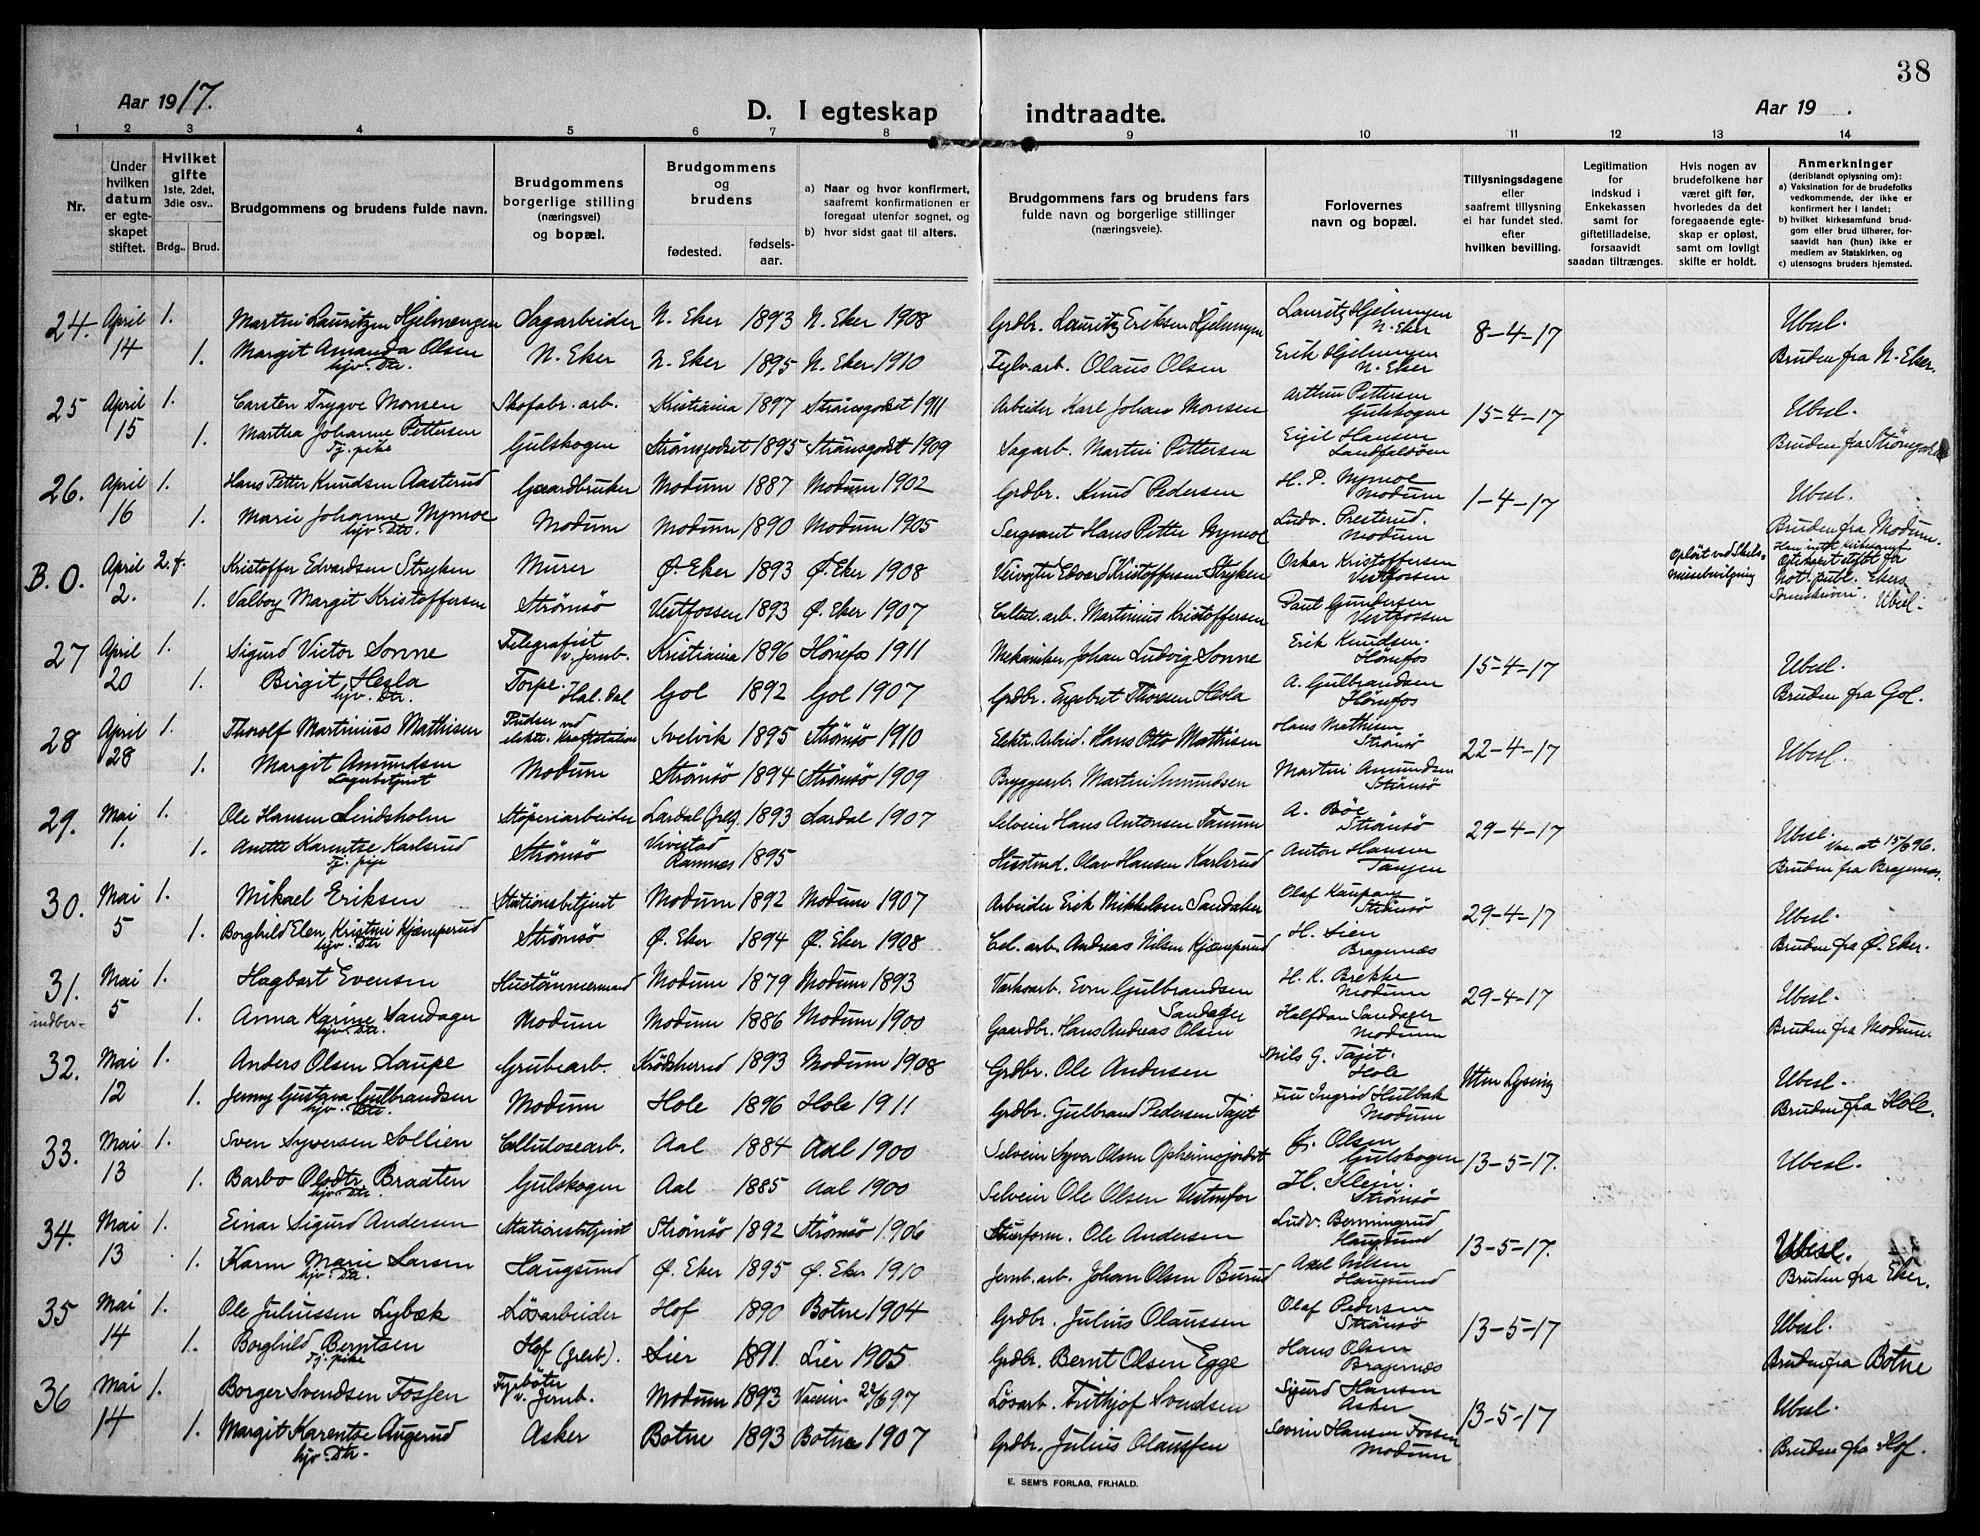 38
Aar 1917.
D. I egteskap indtraadte.
Aar 19 .
1 2 3 4 5 6 7 8 9 10 11 12 13 14
Nr.
Under hvilken datum er egteskapet stiftet.
Hvilket gifte 1ste, 2det, 3die osv..
Brdg.. Brud.
Brudgommens og brudens fulde navn.
Brudgommens borgerlige stilling (næringsvei) og bopæl.
Brudgommens og brudens
fødested. fødsels-aar.
a) Naar og hvor konfirmert, saafremt konfirmationen er foregaat utenfor sognet, og
b) hvor sidst gaat til alters.
Brudgommens fars og brudens fars fulde navn og borgerlige stillinger (næringsveie).
Forlovernes navn og bopæl.
Tillysningsdagene eller saafremt tillysning ei har fundet sted. efter hvilken bevilling.
Legitimation for indskud i Enkekassen samt for giftetilladelse, forsaavidt saadan tiltrænges.
Hvis nogen av brudefolkene har været gift før, hvorledes da det foregaaende egteskap er opløst, samt om lovligt skifte er holdt.
Anmerkninger (deriblandt oplysning om):
a) Vaksination for de brudefolks vedkommende, der ikke er konfirmert her i landet;
b) hvilket kirkesamfund brudgom eller brud tilhører, forsaavidt han (hun) ikke er medlem av Statskirken, og
c) utensogns bruders hjemsted.
24. April 1. Martin Lauritzen Hjelmengen Sagarbeider N. Eker 1893 N. Eker 1908 Grdbr. Lauritz Eriksen Hjelmengen Lauritz Hjelmengen N. Eker 8-4-17 Ubesl.
14 1. Margit Amanda Olsen hjv. Dtr. N. Eker N. Eker 1895 N. Eker 1910 Teglv.arb. Olaus Olsen Erik Hjelmengen N. Eker Bruden fra N. Eker.
25 April 1. Carsten Trygve Monsen Skofabr. arb. Kristiania 1897 Strømsgodset 1911 Arbeider Karl Johan Monsen Arthur Pettersen Gulskogen 15-4-17 Ubesl.
15 1. Martha Johanne Pettersen Tj. pike Gulskogen Strømsgodset 1895 Strømsgodset 1909 Sagarb. Martin Pettersen Eigil Hansen Landfaldøen Bruden fra
26. April 1. Hans Petter Knudsen Aasterud Gaardbruker Modum 1887 Modum 1902 Grdbr. Knud Pedersen H. P. Nymoe Modum 1-4-17 Ubesl.
16 1. Marie Johanne Nymoe hjv. Dtr. Modum Modum 1890 Modum 1905 Sergeant Hans Petter Nymoe Ludv. Presterud. Modum Bruden fra Modum.
B. O. April 2. 2. f. Kristoffer Edvardsen Stryken Murer Ø. Eker 1893 Ø. Eker 1908 Veivogter Edvard Kristoffersen Stryken Oskar Kristoffersen Vestfossen Opløst ved
1. Valborg Margit Kristoffersen Strømsø Vestfossen 1893 Ø. Eker 1907 Cellul. arb. Martinius Kristoffersen Paul Gundersen Vestfossen Not. publ. Ekers Sorenskriveri. Ubesl.
27 April 1. Sigurd Victor Sonne Telegrafist v. Jernb. Kristiania 1896 Hønefos 1911 Mekaniker Johan Ludvig Sonne Erik Knudsen. Hønefos 15-4-17 Ubesl.
20 1. Birgit Hesla hjv. Dtr. Torpe. Hal. dal Gol 1892 Gol 1907 Grdbr. Engebret Thoresen Hesla A. Gulbrandsen Hønefos Bruden fra Gol.
28 April 1. Thorolf Martinius Mathisen Pudser ved elektr. Kraftstation Svelvik 1895 Strømsø 1910 Elektr. Arbeid. Hans Otto Mathisen Hans Mathisen Strømsø 22-4-17 Ubesl.
28 1. Margit Amundsen Lagerbetjent Modum Strømsø 1894 Strømsø 1909 Bryggearb. Martin Amundsen Martin Amundsen Strømsø
29. Mai 1. Ole Hansen Lindsholm Støperiarbeider Lardal Jrlsb. 1893 Lardal 1907 Selveier Hans Antonsen Tanum A. Bøe Strømsø 29-4-17 Ubesl.
1. 1. Anette Karentze Karlsrud Tj. pige Strømsø Vivestad Ramnes 1895 Husmd. Olav Hansen Karlsrud Anton Hansen Tangen Vac. at 15/6 96. Bruden fra Bragernes.
30. Mai 1. Mikael Eriksen Stationsbetjent Modum 1892 Modum 1907 Arbeider Erik Mikkelsen Sandaker Olaf Kaupang Strømsø 29-4-17 Ubesl.
5 1. Borghild Elen Kristine Kjæmperud hjv. Dtr Strømsø Ø. Eker 1894 Ø. Eker 1908 Cel. arb. Andreas Nilsen Kjæmperud H. Lien Bragernæs Bruden fra Ø. Eker.
31. Mai 1. Hagbart Evensen Hustømmermand Modum 1879 Modum 1893 Verksarb. Even Gulbrandsen Sandager H. K. Brekke Modum 29-4-17 Ubesl.
indber- 5 1. Anna Karine Sandager hjv. Dtr. Modum Modum 1886 Modum 1900 Gaardbr. Hans Andreas Olsen Halfdan Sandager Modum Bruden fra Modum.
32. Mai 1. Anders Olsen Laupe Grubearb. Krødsherred 1893 Modum 1908 Grdbr. Ole Andersen Nils G. Tajet. Hole Uten Lysning Ubesl.
12 1. Jenny Gustava Gulbrandsen hjv. Dtr. Modum Hole 1896 Hole 1911 Grdbr. Gulbrand Pedersen Tajet Fru Ingrid Hulbak Modum Bruden fra Hole.
33. Mai 1. Sven Syversen Sollien Cellulosearb. Aal 1884 Aal 1900 Selveier Syver Olsen Opheimsjordet Olsen Gulskogen 13-5-17. Ubesl.
13 1. Barbo Olsdtr. Braaten hjv. Dtr. Gulskogen Aal 1885 Aal 1900 Selveier Ole Olsen H. Klein. Strømsø
34. Mai 1. Einar Sigurd Andersen Stationsbetjent Strømsø 1892 Strømsø 1906 Ole Andersen Ludv. Benningrud Haugsund 13-5-17. Ubesl.
13 1. Karen Marie Larsen hjv. Dtr. Haugsund Ø. Eker 1895 Ø. Eker 1910 Jernb. arb. Johan Olsen Burud Axel Nilsen Haugsund Bruden fra Eker.
35 Mai 1. Ole Juliussen Lybæk Løsarbeider Hof 1890 Botne 1904 Grdbr. Julius Olaussen Olaf Pedersen Strømsø 13-5-17 Ubesl.
14 1. Borghild Berntsen Tj. pike Hof (Jrlsb). Lier 1891 Lier 1905 Grdbr. Bernt Olsen Egge Hans Olsen Bragernæs Bruden fra Botne
36 Mai 1. Borger Svendsen Fossen Fyrbøter v. Jernb. Modum 1893 Vaccin. 22/6 97. Løsarb. Frithjof Svendsen Sigurd Hansen Asker 13-5-17 Ubesl.
14 1. Margit Karentse Augerud hjv. Dtr. Asker Botne 1893 Botne 1907 Grdbr. Julius Olaussen Hansen Fossen Modum Bruden fra Hof.
E. SEM'S FORLAG, FR.HALD.